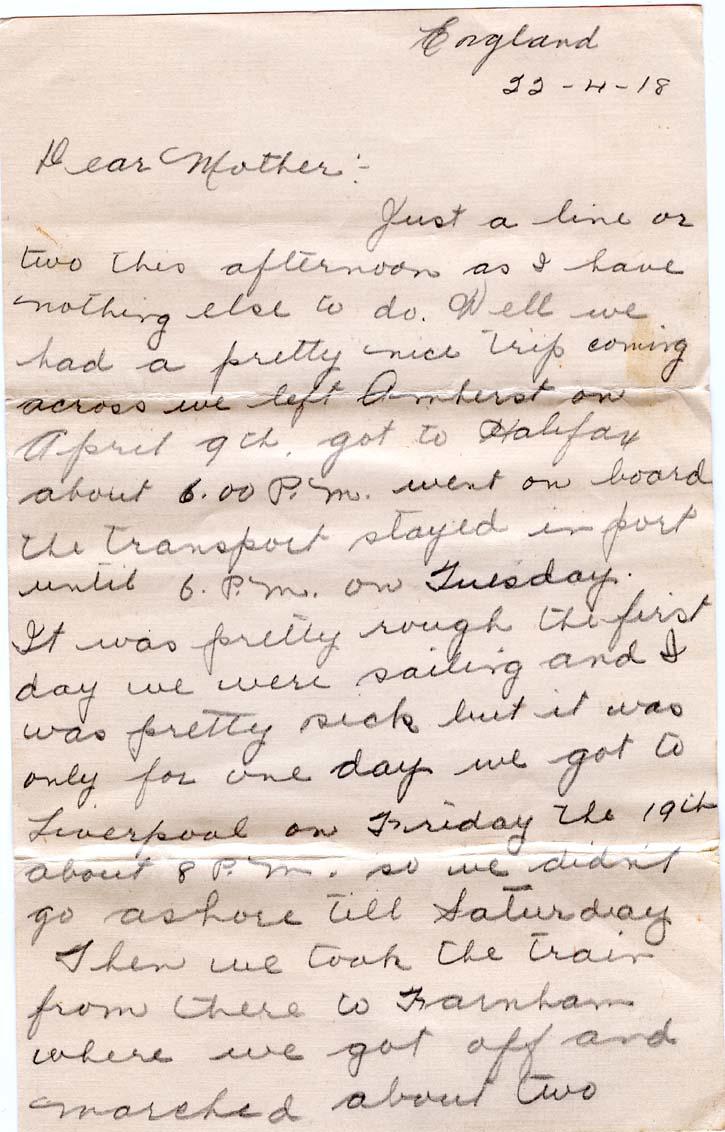 England
22-4-18
Dear Mother:-
Just a line or
two this afternoon as I have
nothing else to do. Well we
had a pretty nice trip coming
across we left Amherst on
April 9th. got to Halifax
about 6.00 P.M. went on board
the transport stayed in port
until 6. P.M. on Tuesday.
It was pretty rough the first
day we were sailing and I
was pretty sick but it was
only for one day we got to
Liverpool on Friday the 19th
about 8 P.M. so we didn't
go ashore till Saturday
Then we took the train
from there to Farnham
where we got off and
marched about two